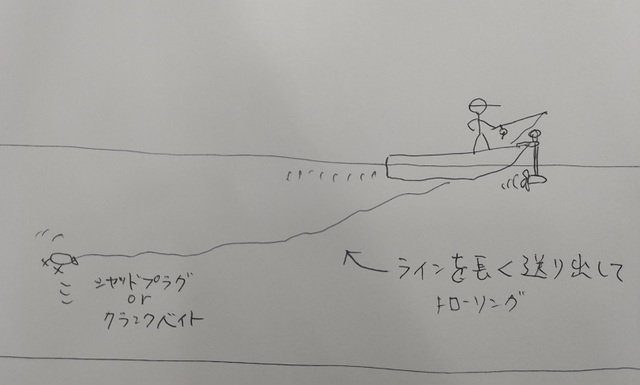 シャッドプラグ
or
クランクベイト
ラインを長く送り出して
トローリング